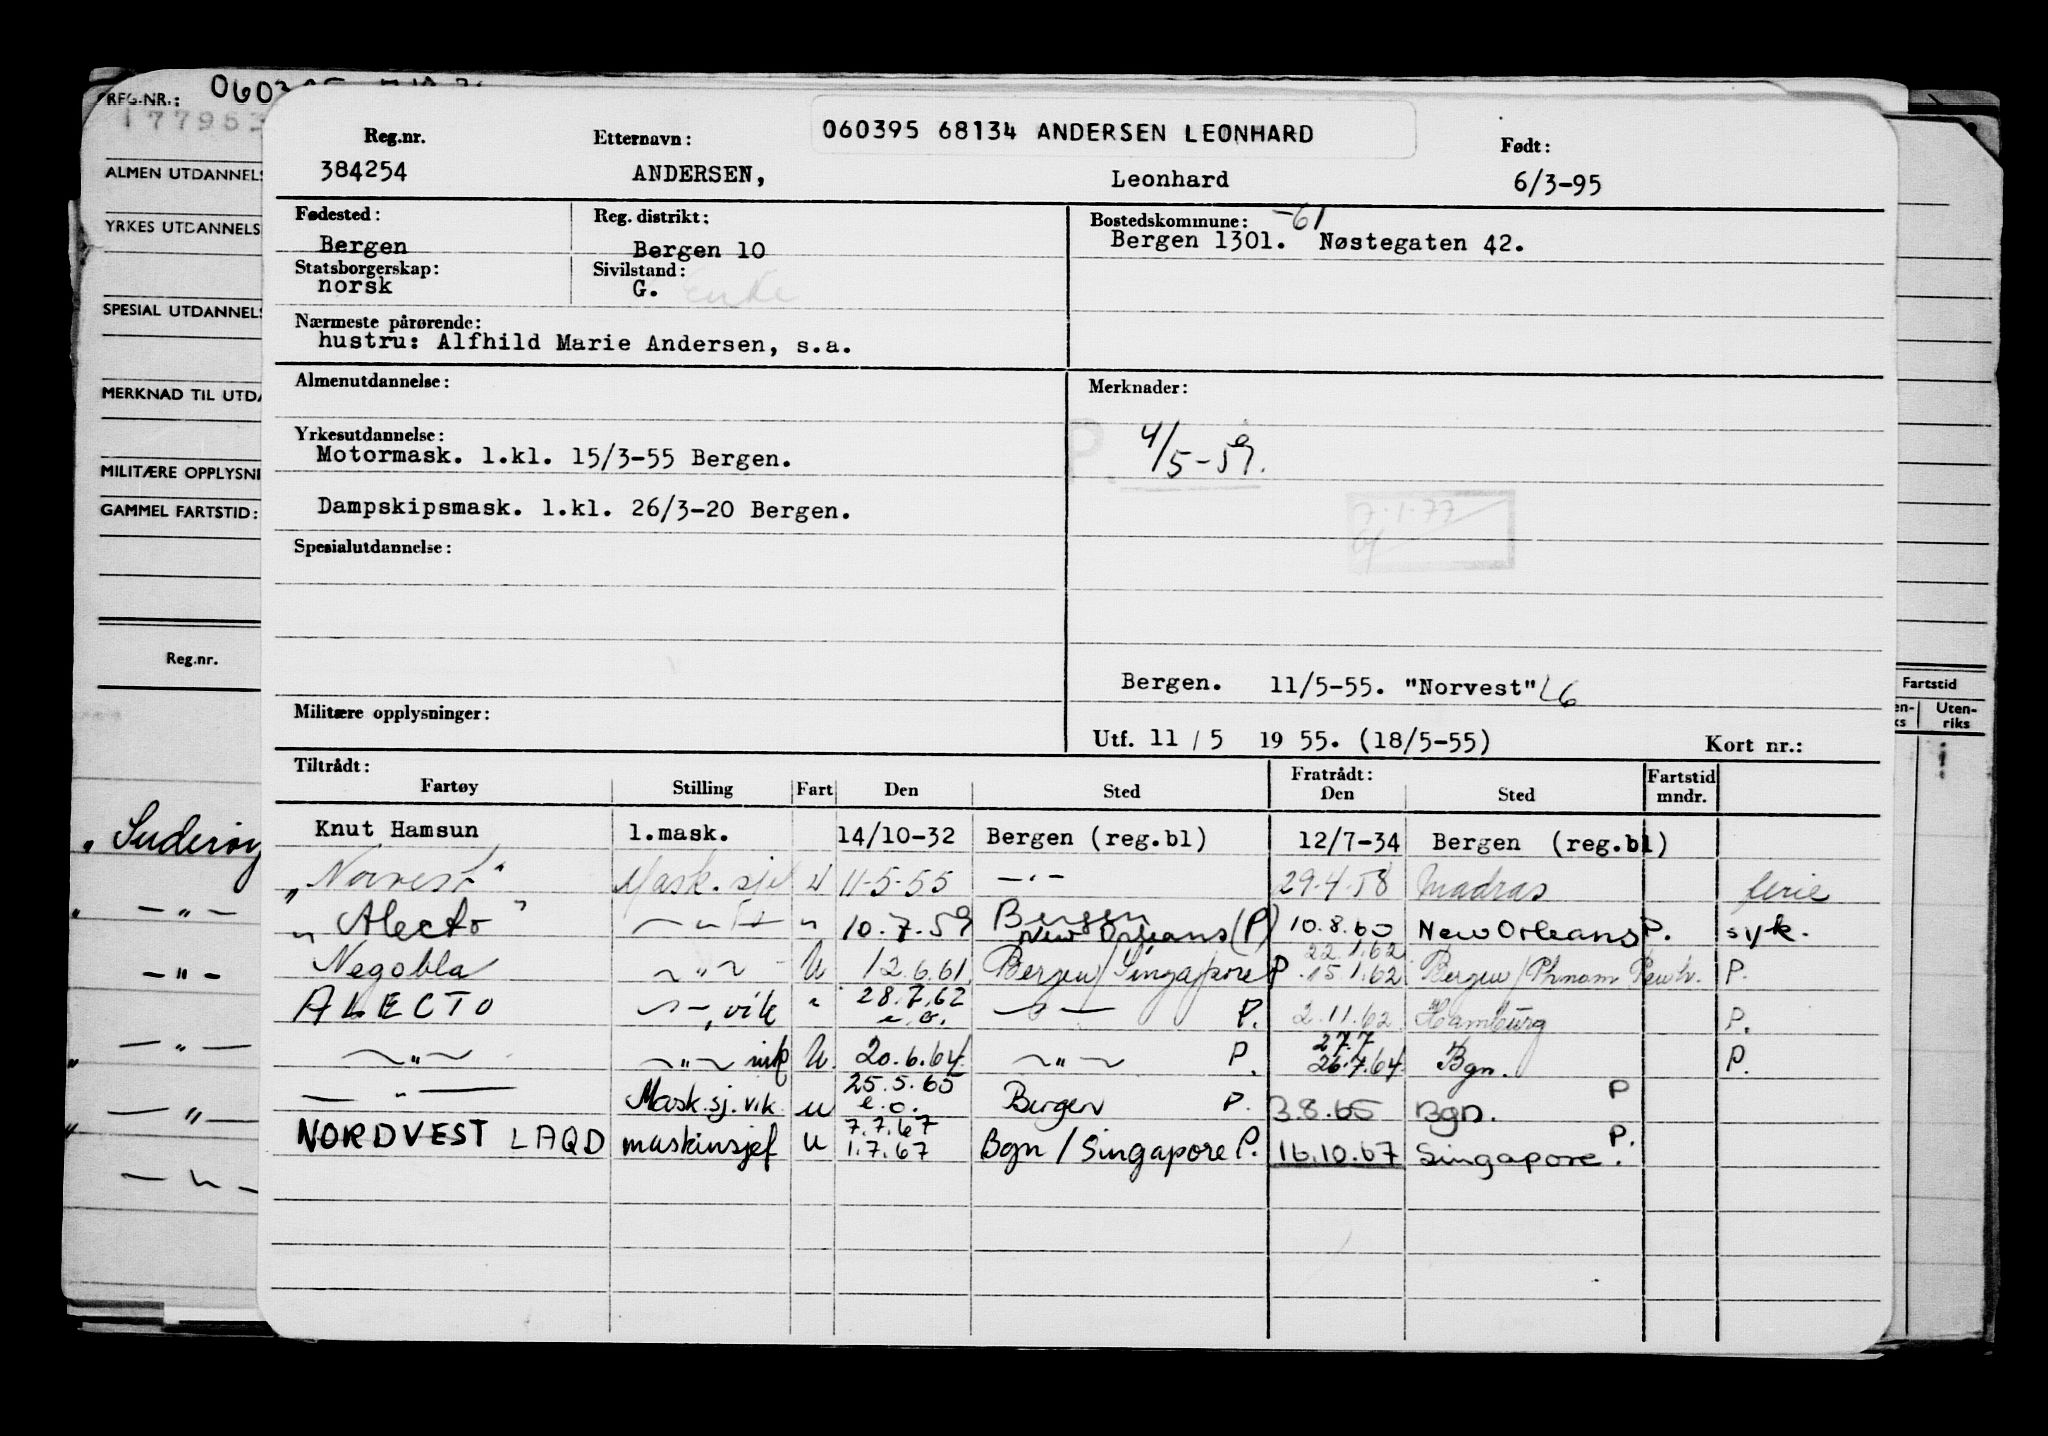 REG.-NR.:
ALMEN UTDANNELS
YRKES UTDANNELS
SPESIAL UTDANNELS
MERKNAD TIL UTDA
MILITÆRE OPPLYSNI
GAMMEL FARTSTID:
Reg.nr.
" Suderøy
" — " —
— " —
" — " —
" — " —
— " —
060395 68134 ANDERSEN LEONHARD
Reg.nr. Etternavn: Født:
384254 ANDERSEN, Leonhard 6/3-95
Fødested: Reg. distrikt: Bostedskommune: -61
Bergen Bergen 10 Bergen 1301. Nøstegaten 42.
Statsborgerskap: Sivilstand:
norsk G. Enke
Nærmeste pårørende:
hustru: Alfhild Marie Andersen, s.a.
Almenutdannelse: Merknader:
P. 4/5-59.
Yrkesutdannelse:
Motormask. 1.kl. 15/3-55 Bergen.
Dampskipsmask. 1.kl. 26/3-20 Bergen.
7.1.77
Spesialutdannelse:
Bergen. 11/5-55. "Norvest" LG
Militære opplysninger:
Utf. 11 / 5 19 55. (18/5-55) Kort nr.:
Tiltrådt: Fratrådt: Fartstid
Fartøy Stilling Fart Den Sted Den Sted mndr.
Knut Hamsun 1.mask. 14/10-32 Bergen (reg.bl) 12/7-34 Bergen (reg.bl)
"Norvest" Mask.sjef U 11-5-55 — " — 29.4.58 Madras ferie
"Alecto" — " — " 10.7.59 Bergen New Orleans (P) 10.8.60 New Orleans P. syk.
22.1.62
Negobla — " — U 12.6.61 Bergen/Singapore P. 15.1.62 Bergen/ P.
28.7.62
ALECTO — " —, vik " e.o. — " — P. 2.11.62 Hamburg P.
27.7
— " — — " — U. 20.6.64 — " — P. 26.7.64 Bgn. P.
25.5.65
— " — Mask.sj.vik. U e.o. Bergen P. 3.8.65 Bgn. P
7.7.67
NORDVEST LAQD maskinsjef U 1.7.67 Bgn / Singapore P. 16.10.67 Singapore. P.
Fartstid
Uten-
riks